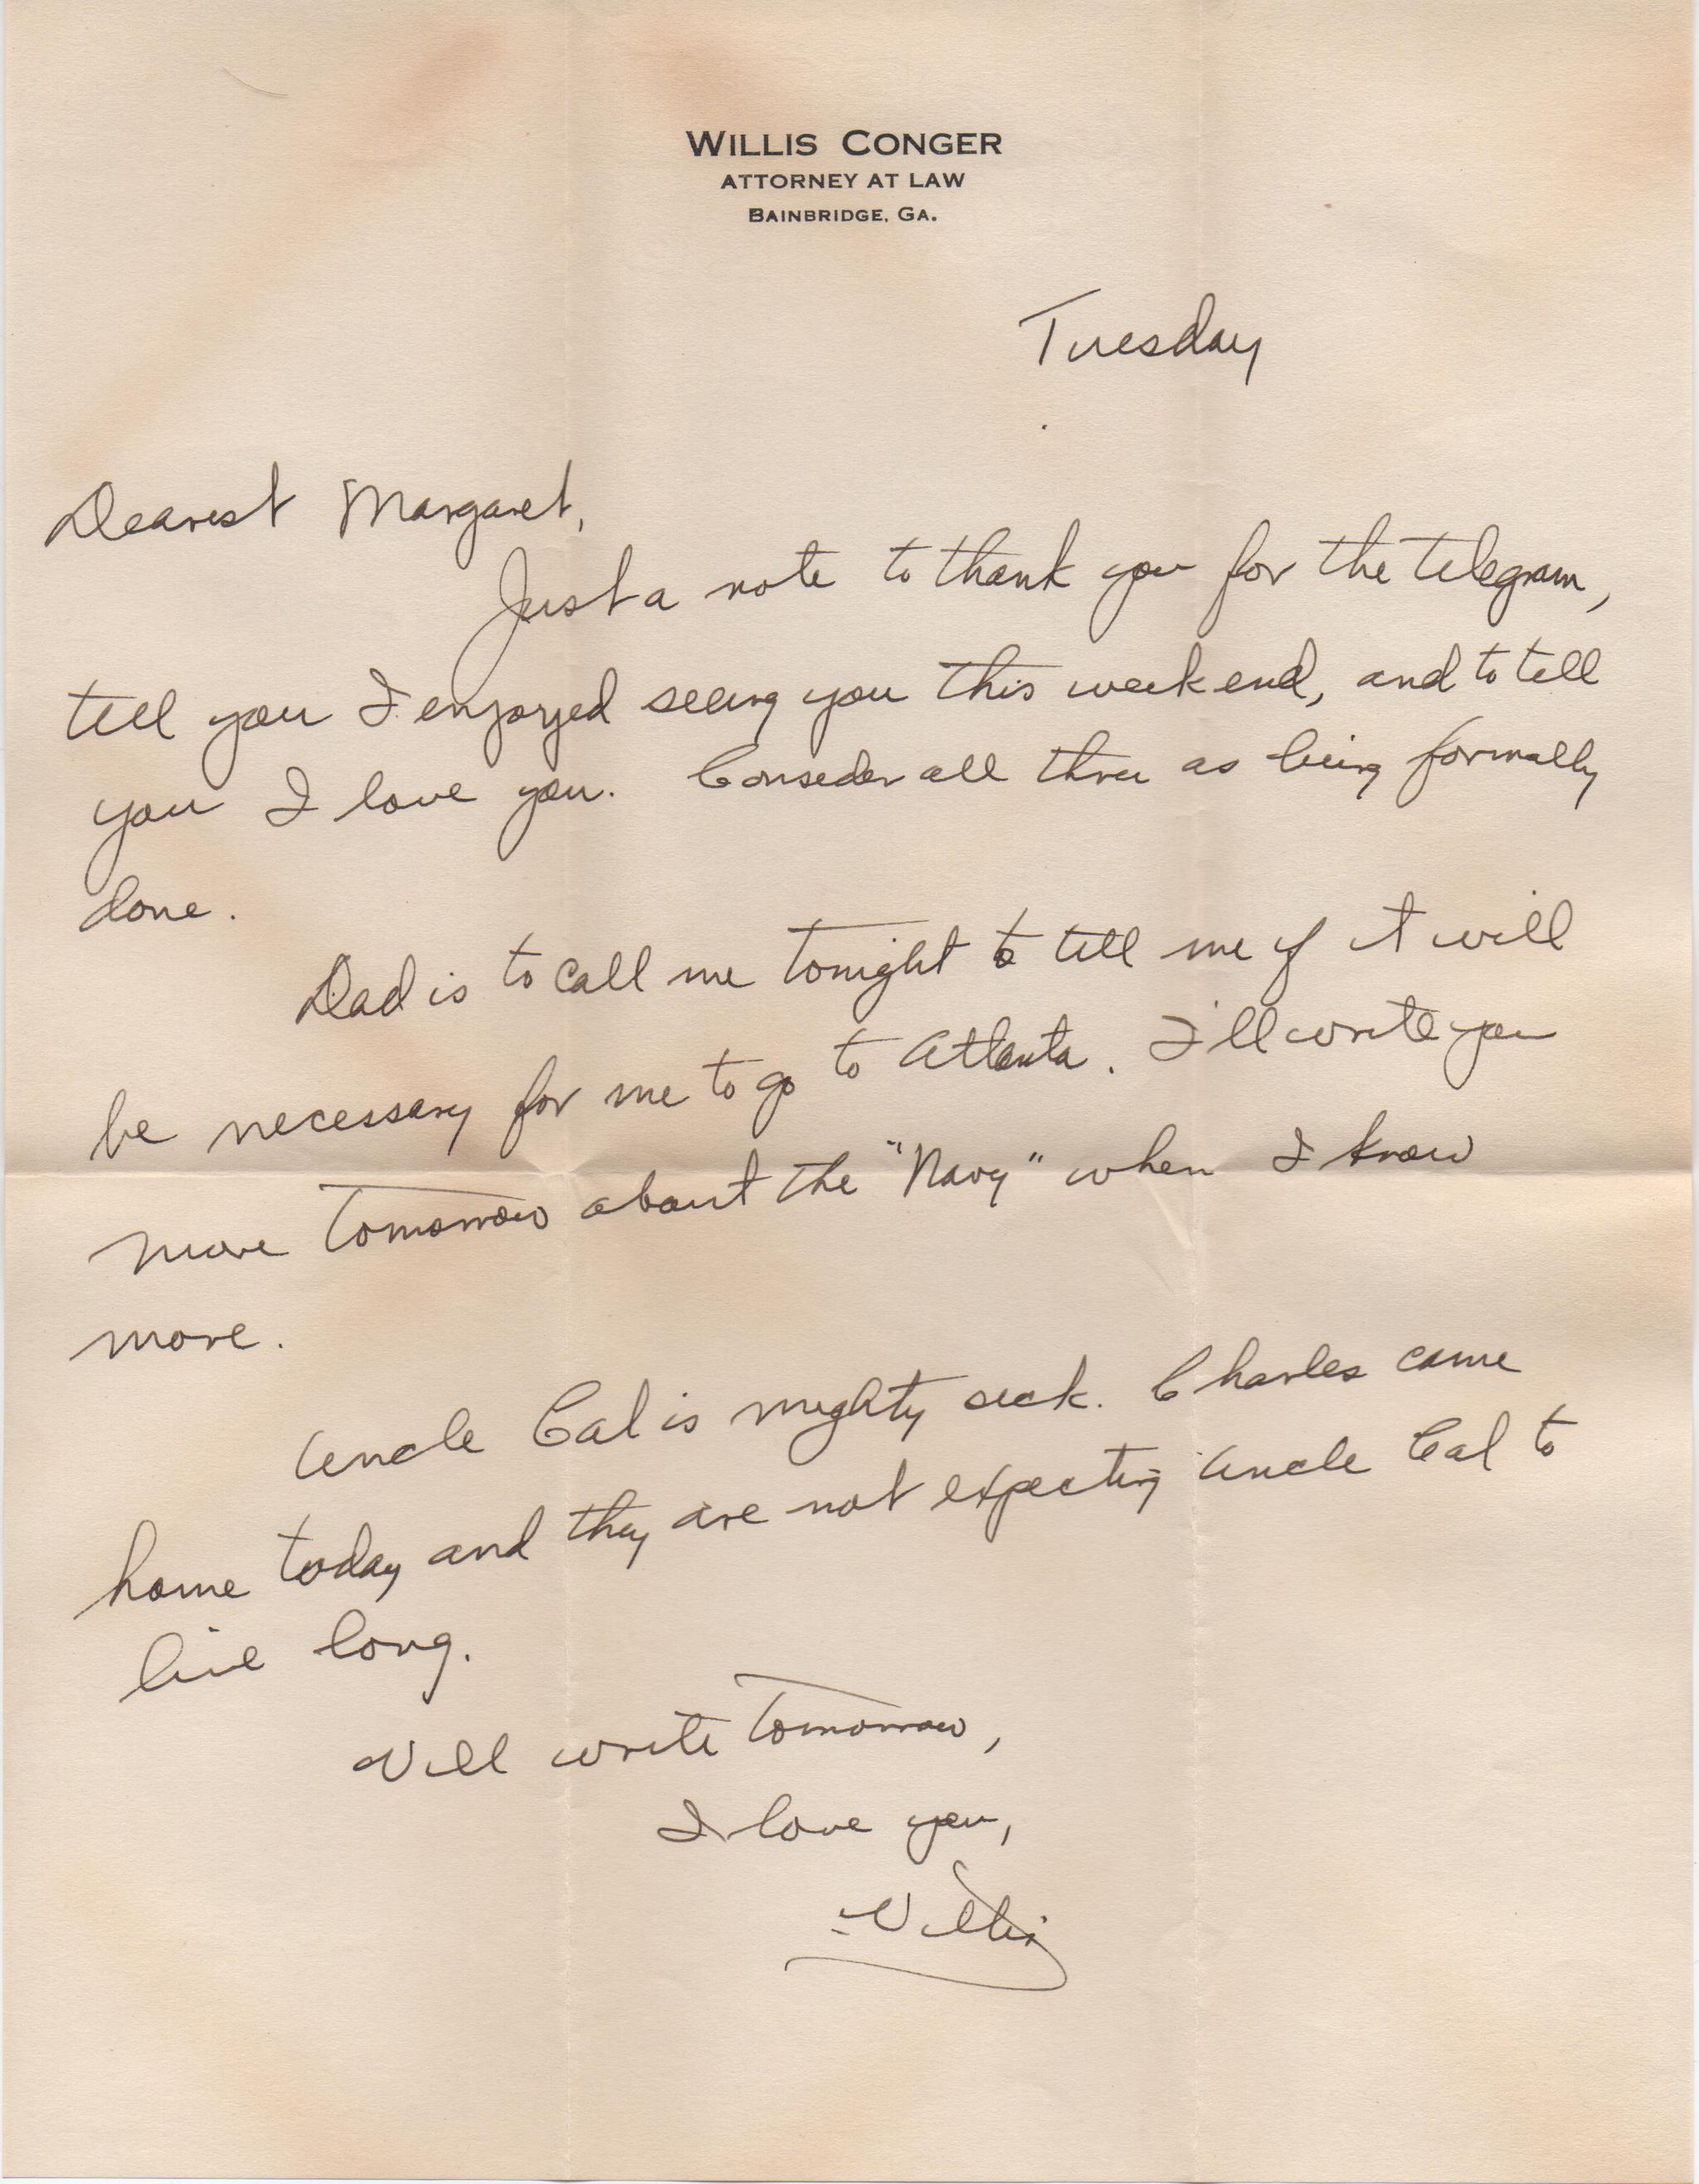 WILLIS CONGER
ATTORNEY AT LAW
BAINBRIDGE, GA.
Tuesday
Dearest Margaret,
Just a note to thank you for the telegram,
tell you I enjoyed seeing you this week end, and to tell
you I love you. Consider all three as being formally
done.
Dad is to call me tonight to tell me if it will
be necessary for me to go to Atlanta. I'll write you
more tomorrow about the "Navy" when I know
more.
Uncle Cal is mighty sick. Charles came
home today and they are not expecting Uncle Cal to
live long.
Will write tomorrow,
I love you,
Willis